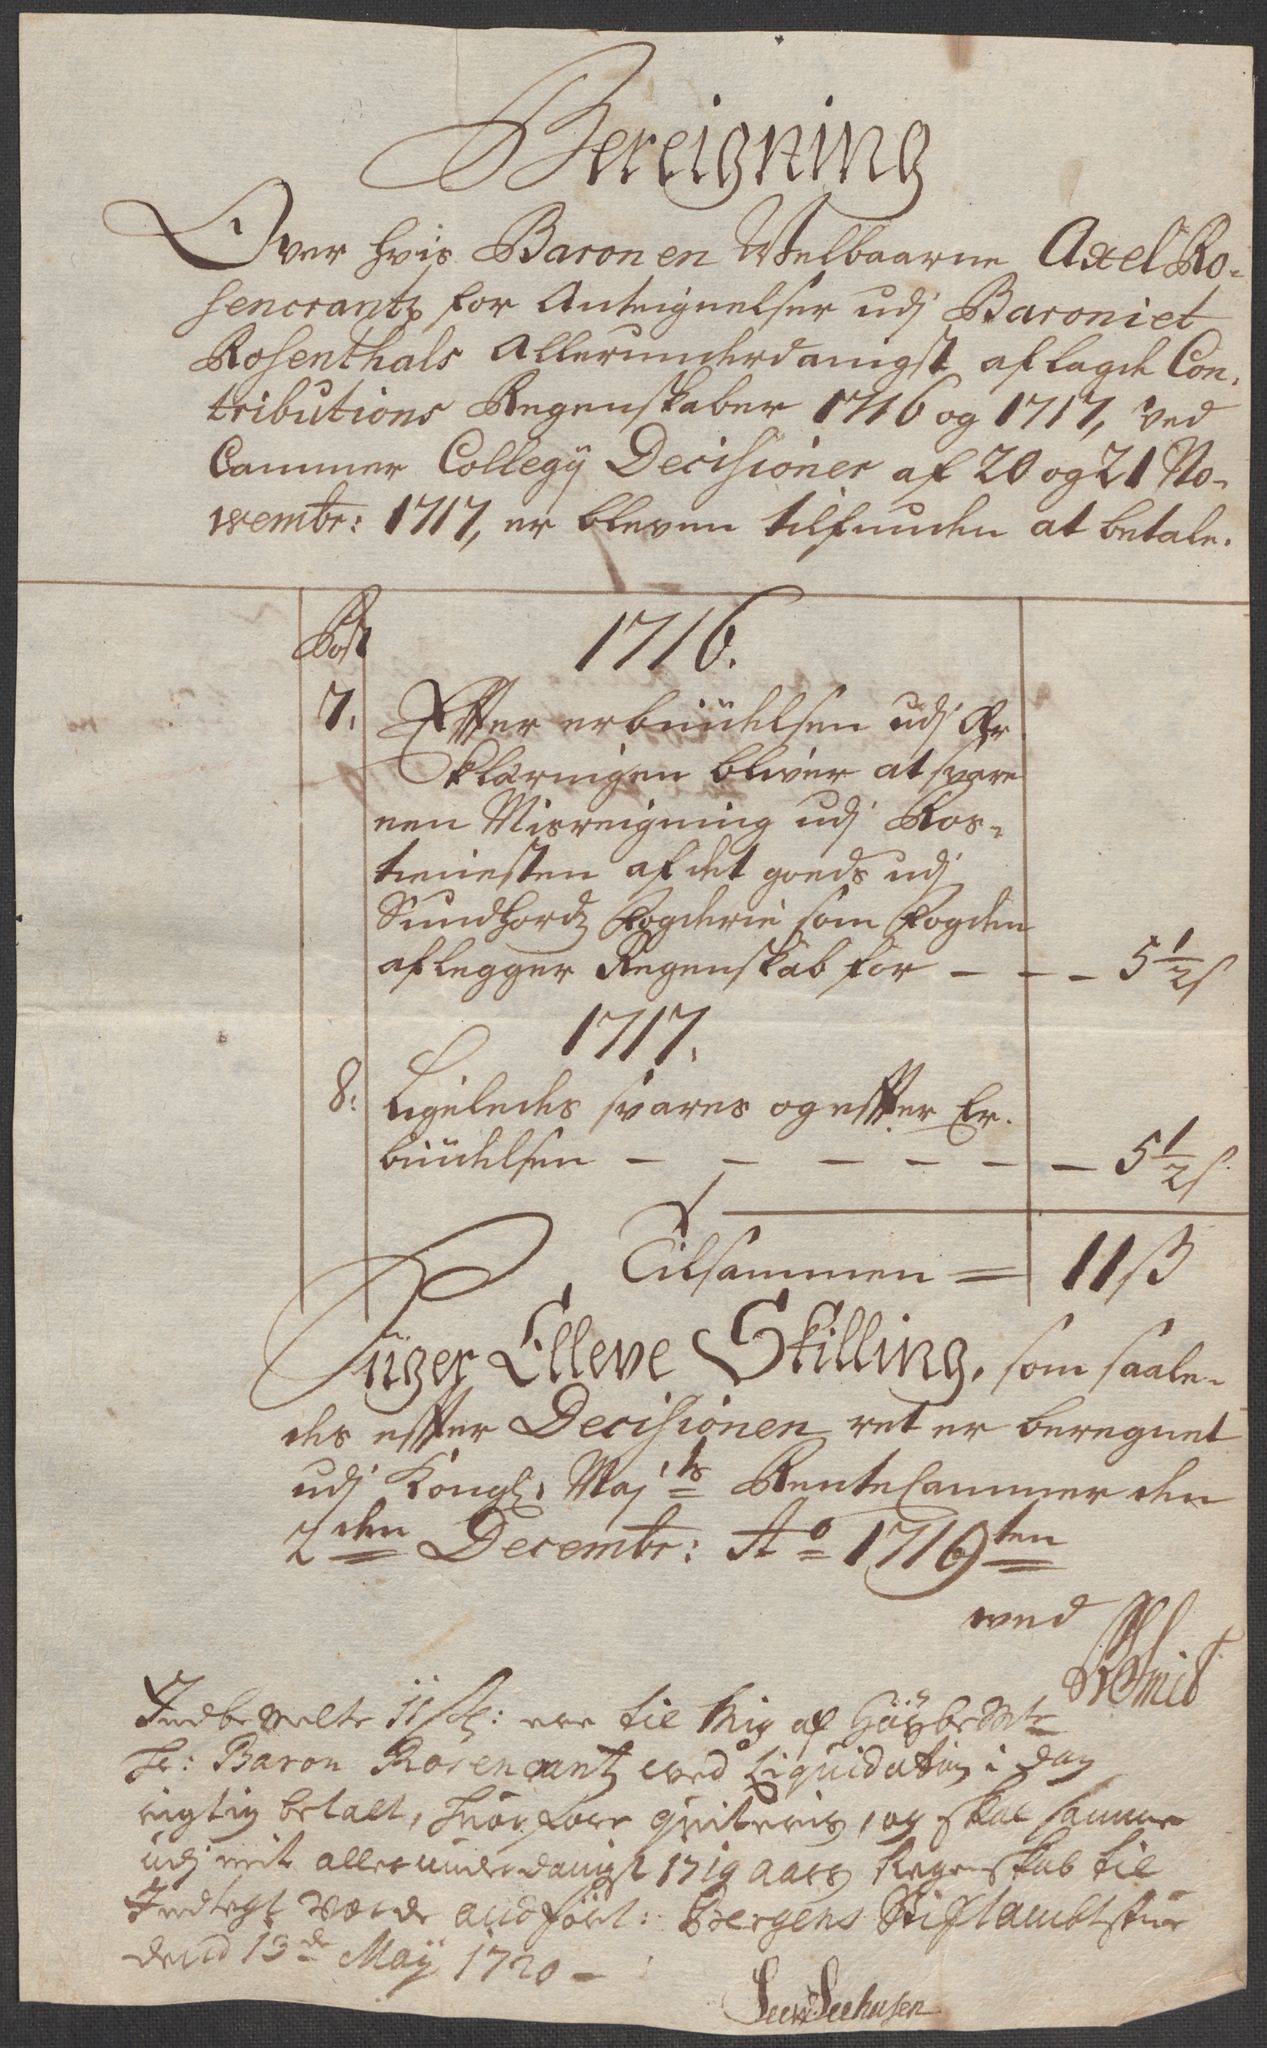 Bereigning
Over hvis Baronen Welbaarne Axel Ro-
sencrantz for Anteignelser udj Baroniet
Rosenthals Allerunderdanigst aflagde Con-
tributions Regenskaber 1716 og 1717, ved
Cammer Collegij Decisioner af 20 og 21 No-
vembr: 1717, er bleven tilfunden at betale.
Post 1716.
7. Effter erbiüdelsen udj Er
klæringen bliver at svare
een Misreigning udj Ros-
tienesten af det goeds udj
Sundhordz Fogderie som Fogden
aflegger Regenskab for — — — 5 1/2 s
1717.
8: Ligeledes svares og effter Er-
biüdelsen — — — — — — 5 1/2 s
Tilsammen = 11 ß
Siger Elleve Skilling, som saale-
des effter Decisionen ret er beregnet
udj Kongl: Maj:ts RenteCammer den
2den Decembr: Ao 1719ten
ved
Smit
Indbemelte 11 sk: ere til Mig af Höybemte
Hr: Baron Rosencrantz ved Liquidation i dag
rigtig betalt, hvorfore qviteris, og skal samme
udj mit allerunderdanigst 1719 aars Regenskab til
Indtegt vorde andfört: Bergens Stiftambtstue
dend 13de Maij 1720 —
Seehusen